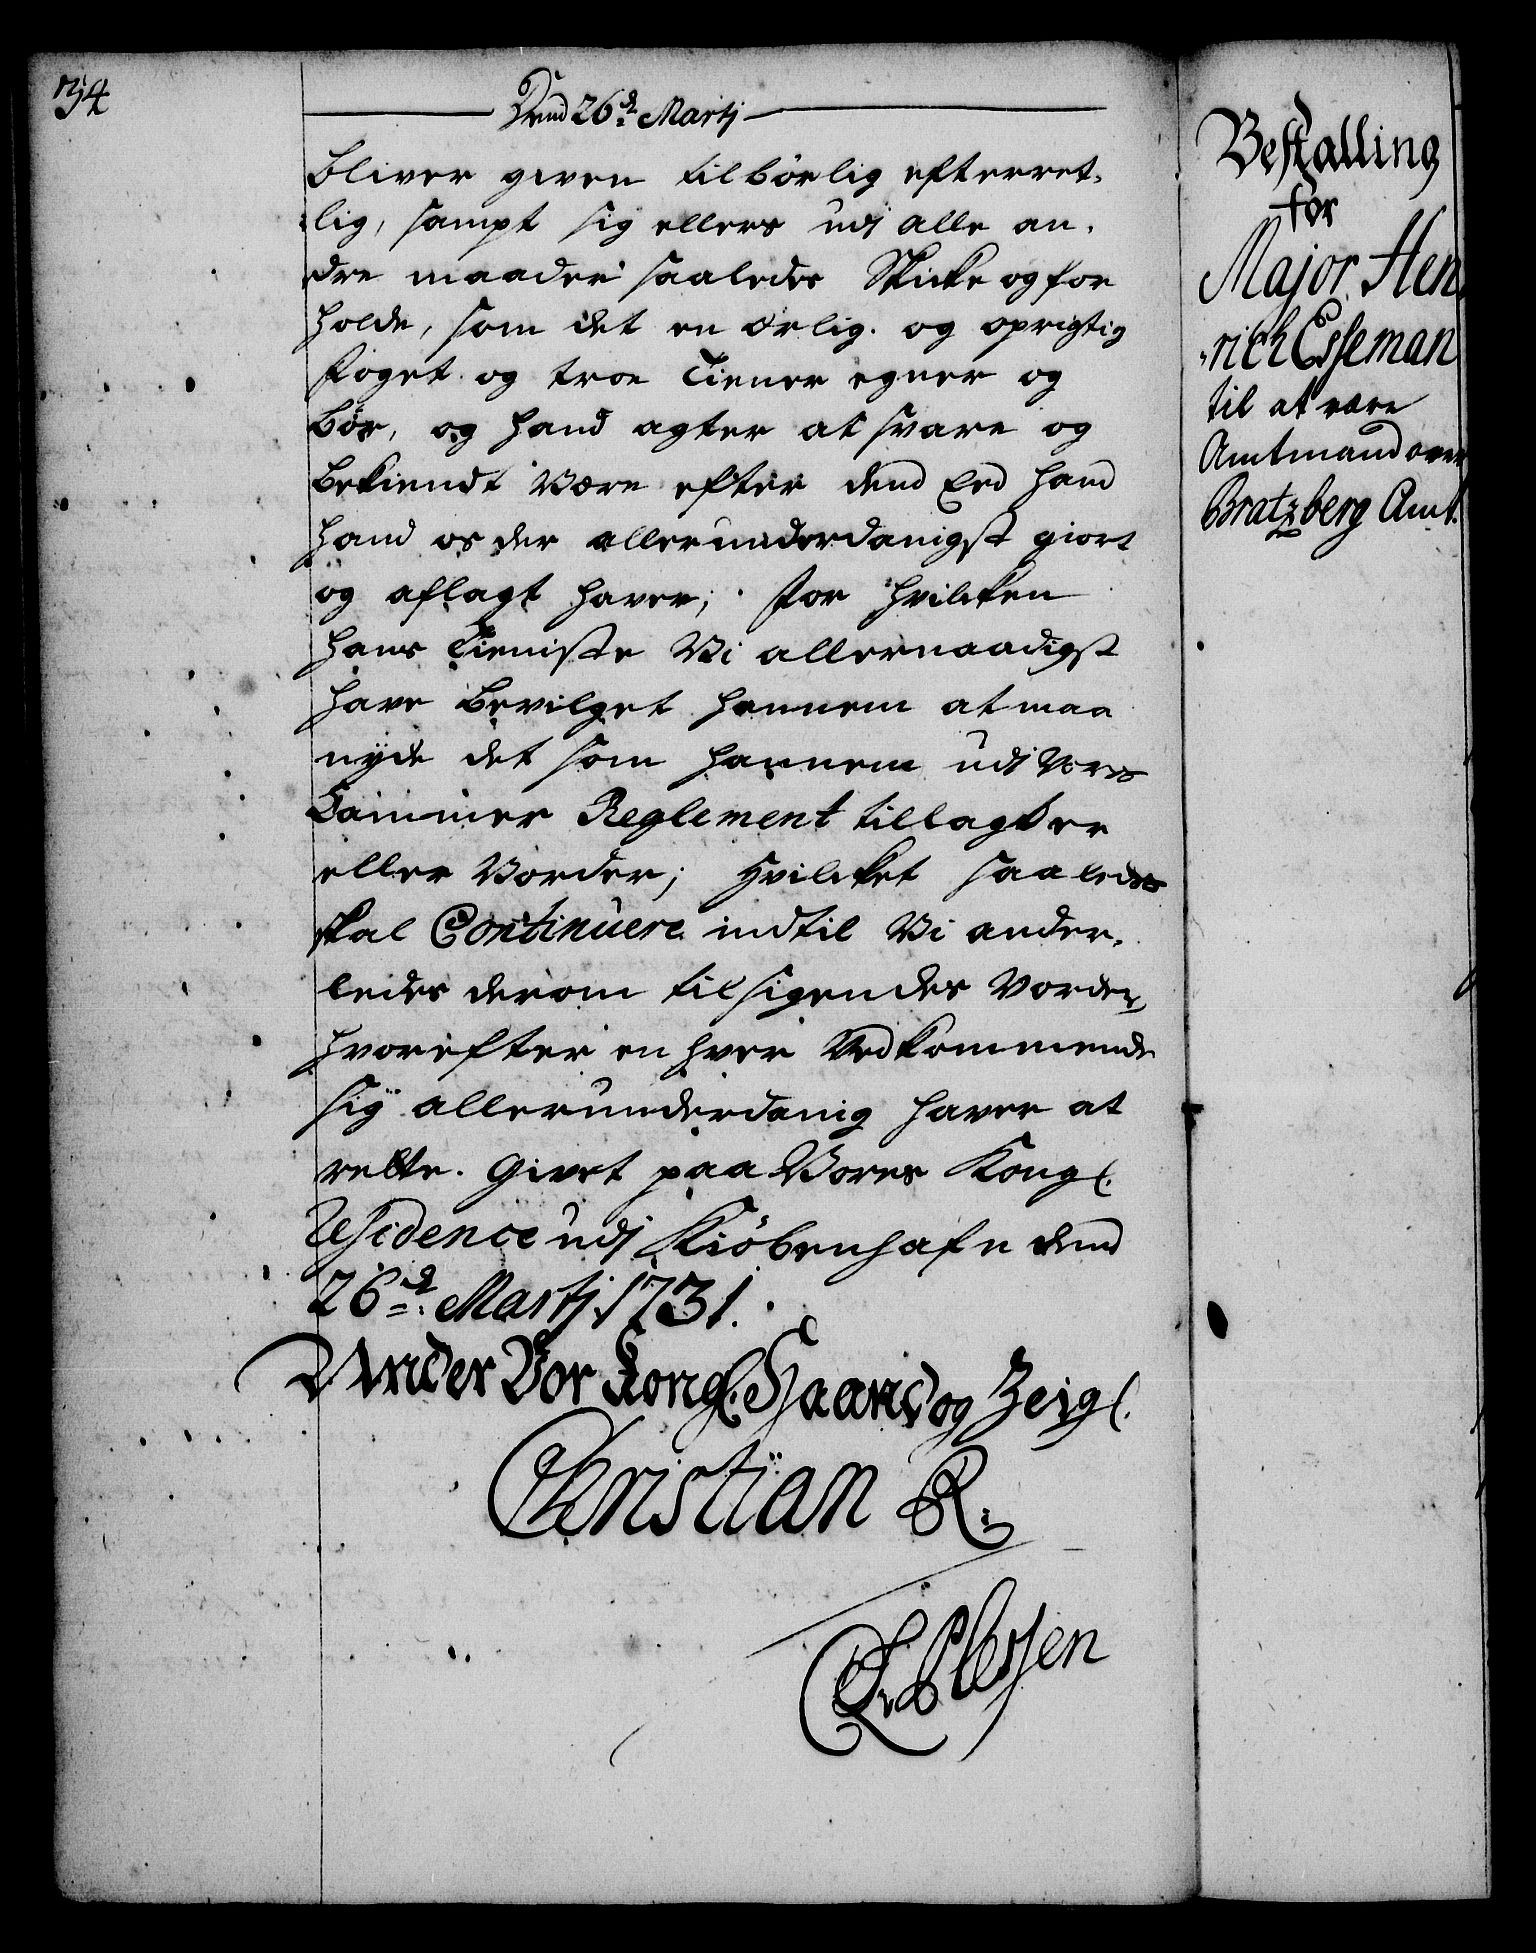 34
Dend 26.de Martj
bliver given tilbörlig efterret-
lig, sampt sig ellers udj alle an-
dre maader saaledes Skicke og for
holde, som det en ærlig og oprigtig
Foget og troe Tiener egner og
bör, og hand agter at svare og
bekiendt Være efter dend Eed hand
hand os der allerunderdanigst giort
og aflagt haver; For hvilcken
hans Tieniste Vi allernaadigst
have Bevilget hannem at maa
nyde det som hannem udj Vores
Cammer Reglement tillagt er
eller Vorder; Hvilcket saaledes
skal Continuere indtil Vi ander-
ledes derom tilsigendes Vorder,
hvorefter en hver Vedkommende
sig allerunderdanig haver at
rette. Givet paa Vores Kongl.
Residence udj Kiöbenhafn dend
26.de Martj 1731.
Under Vor Kongl. Haand og Zeigl.
Christian R.
C. A. v. Plessen
Bestalling
for
Major Hen
-rich Esseman
til at være
Amtmand over
Bratzberg Amt.